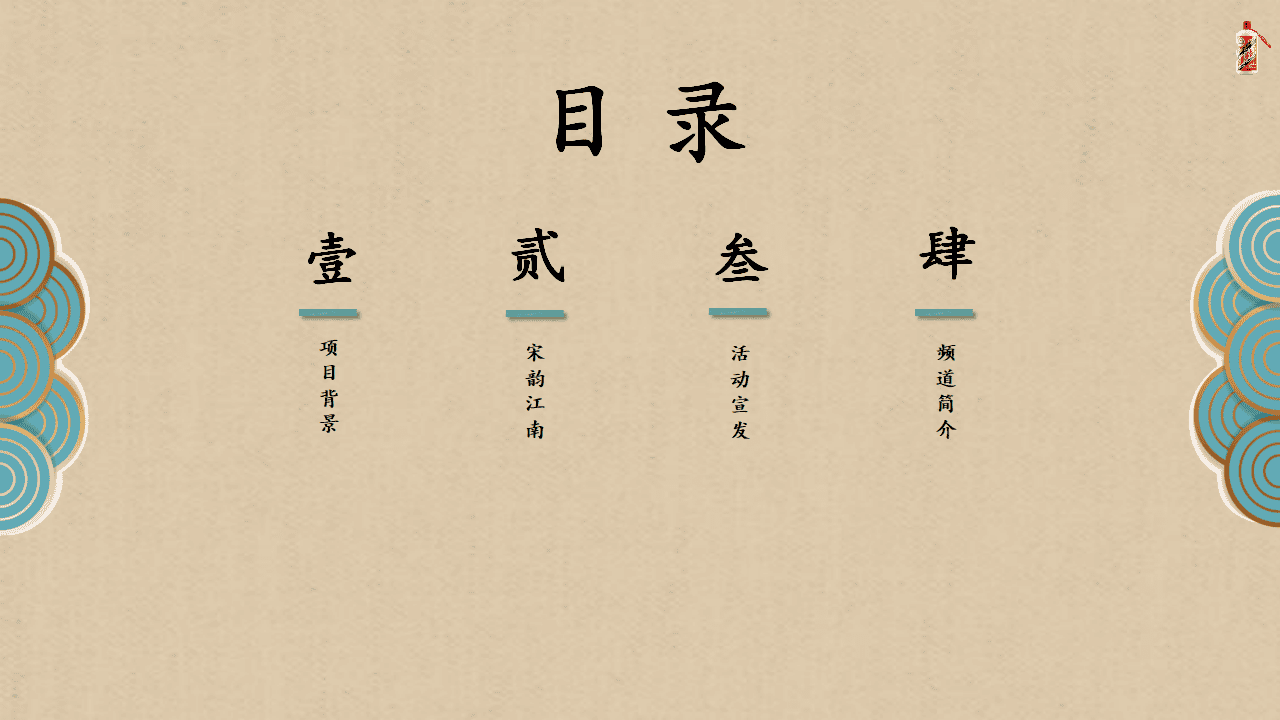 目录
壹
项目背景
贰
宋韵江南
叁
活动宣发
肆
频道简介